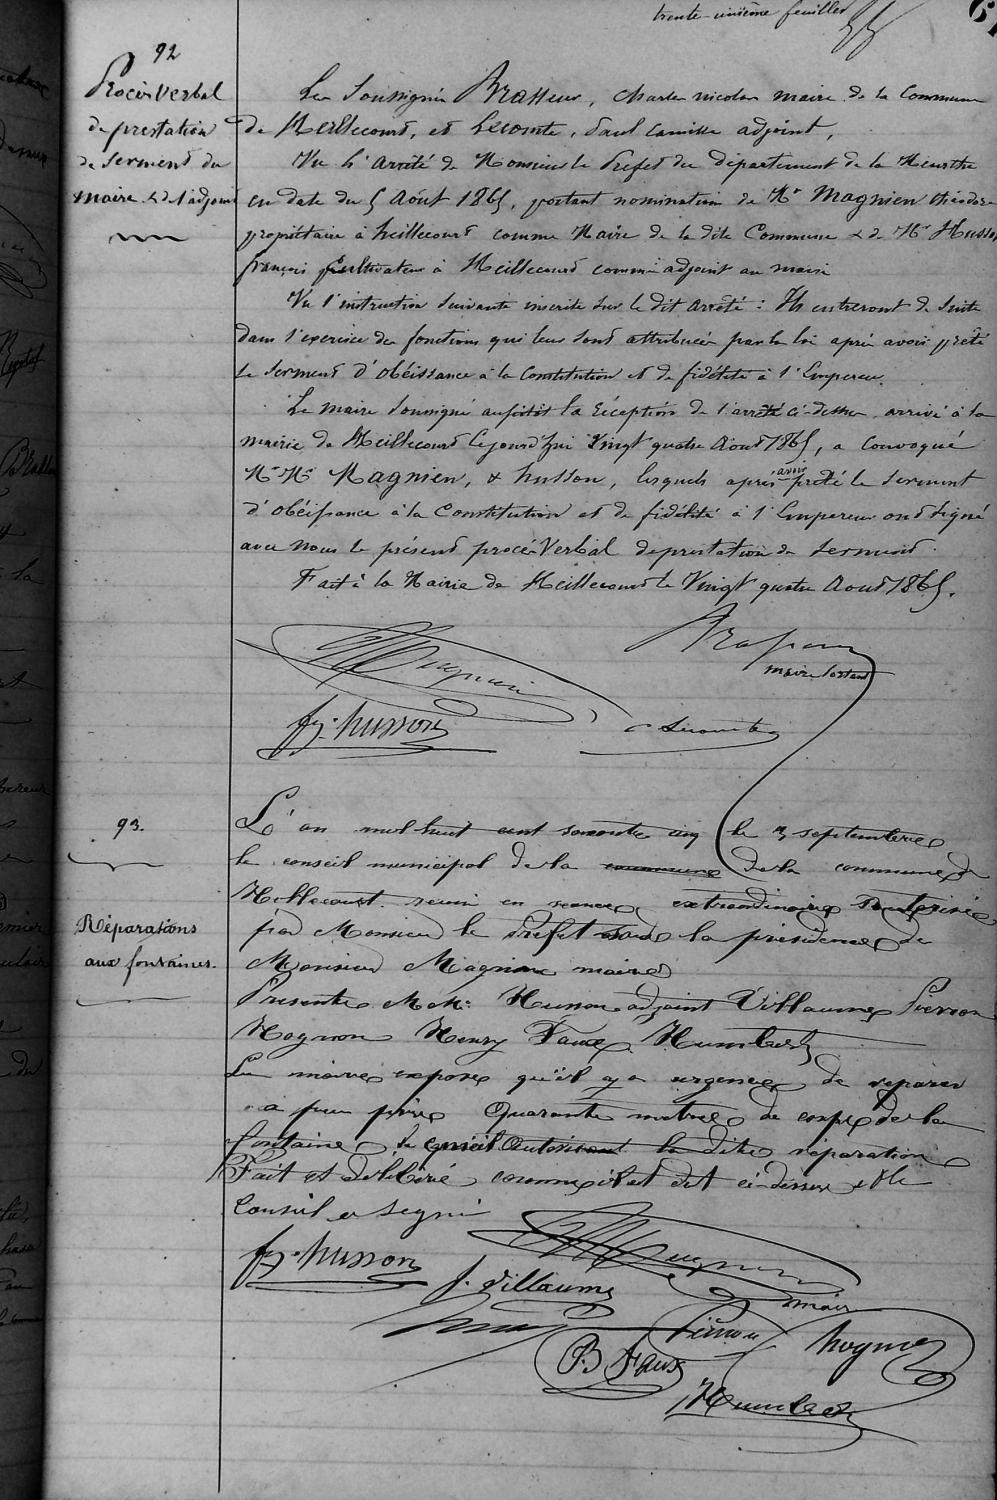 trente-unième feuillet
61
92
Procès Verbal
de prestation
de serment du
maire & de l'adjoint
Les Soussignés Brasseur, Charles nicolas maire de la Commune
de Heillecourt, et Lecomte, Paul Camille adjoint,
Vu l'Arrêté de Monsieur le Préfet du département de la Meurthe
en date du 5 Août 1865, portant nomination de Mr Magnien théodore
propriétaire à heillecourt comme Maire de la dite Commune & de Mr Husson
françois Cultivateur à Heillecourt comme adjoint au maire
Vu l'instruction suivante inscrite sur le dit arrêté : Ils entreront de suite
dans l'exercice des fonctions qui leur sont attribuées par la loi après avoir prêté
le serment d'obéissance à la Constitution et de fidélité à l'Empereur.
Le maire soussigné aussitôt la réception de l'arrêté ci-dessus arrivé à la
mairie de Heillecourt cejourd'hui Vingt quatre Août 1865, a convoqué
Mr Mr Magnien, & husson, lesquels après avoir prêté le serment
d'obéissance à la Constitution et de fidélité à l'Empereur ont signé
avec nous le présent procès Verbal de prestation de serment.
Fait à la Mairie de Heillecourt le Vingt quatre Aout 1865.
Magnien
Brasseur
maire sortant
fçs. husson
C Lecomte
93.
Réparations
aux fontaines.
L'an mil huit cent soixante cinq le 3 septembre
le conseil municipal de la commune de la commune de
Heillecourt reuni en seance extraordinaire autorisée
par Monsieur le Préfet sous la présidence de
Monsieur Magnien maire
Presents M.M. Husson adjoint Villaume Pierron
Hognon Henry Faux Humbert
Le maire expose qu'il y a urgence de reparer
a peu près Quarante metres de corps de la
fontaine le conseil autorisant la dite réparation
Fait et délibéré comme il est dit ci-dessus & le
Conseil a signé
fçs. husson
Magnien
maire
J. Villaume
Henry
Pierron
hognon
B Faux
Humbert